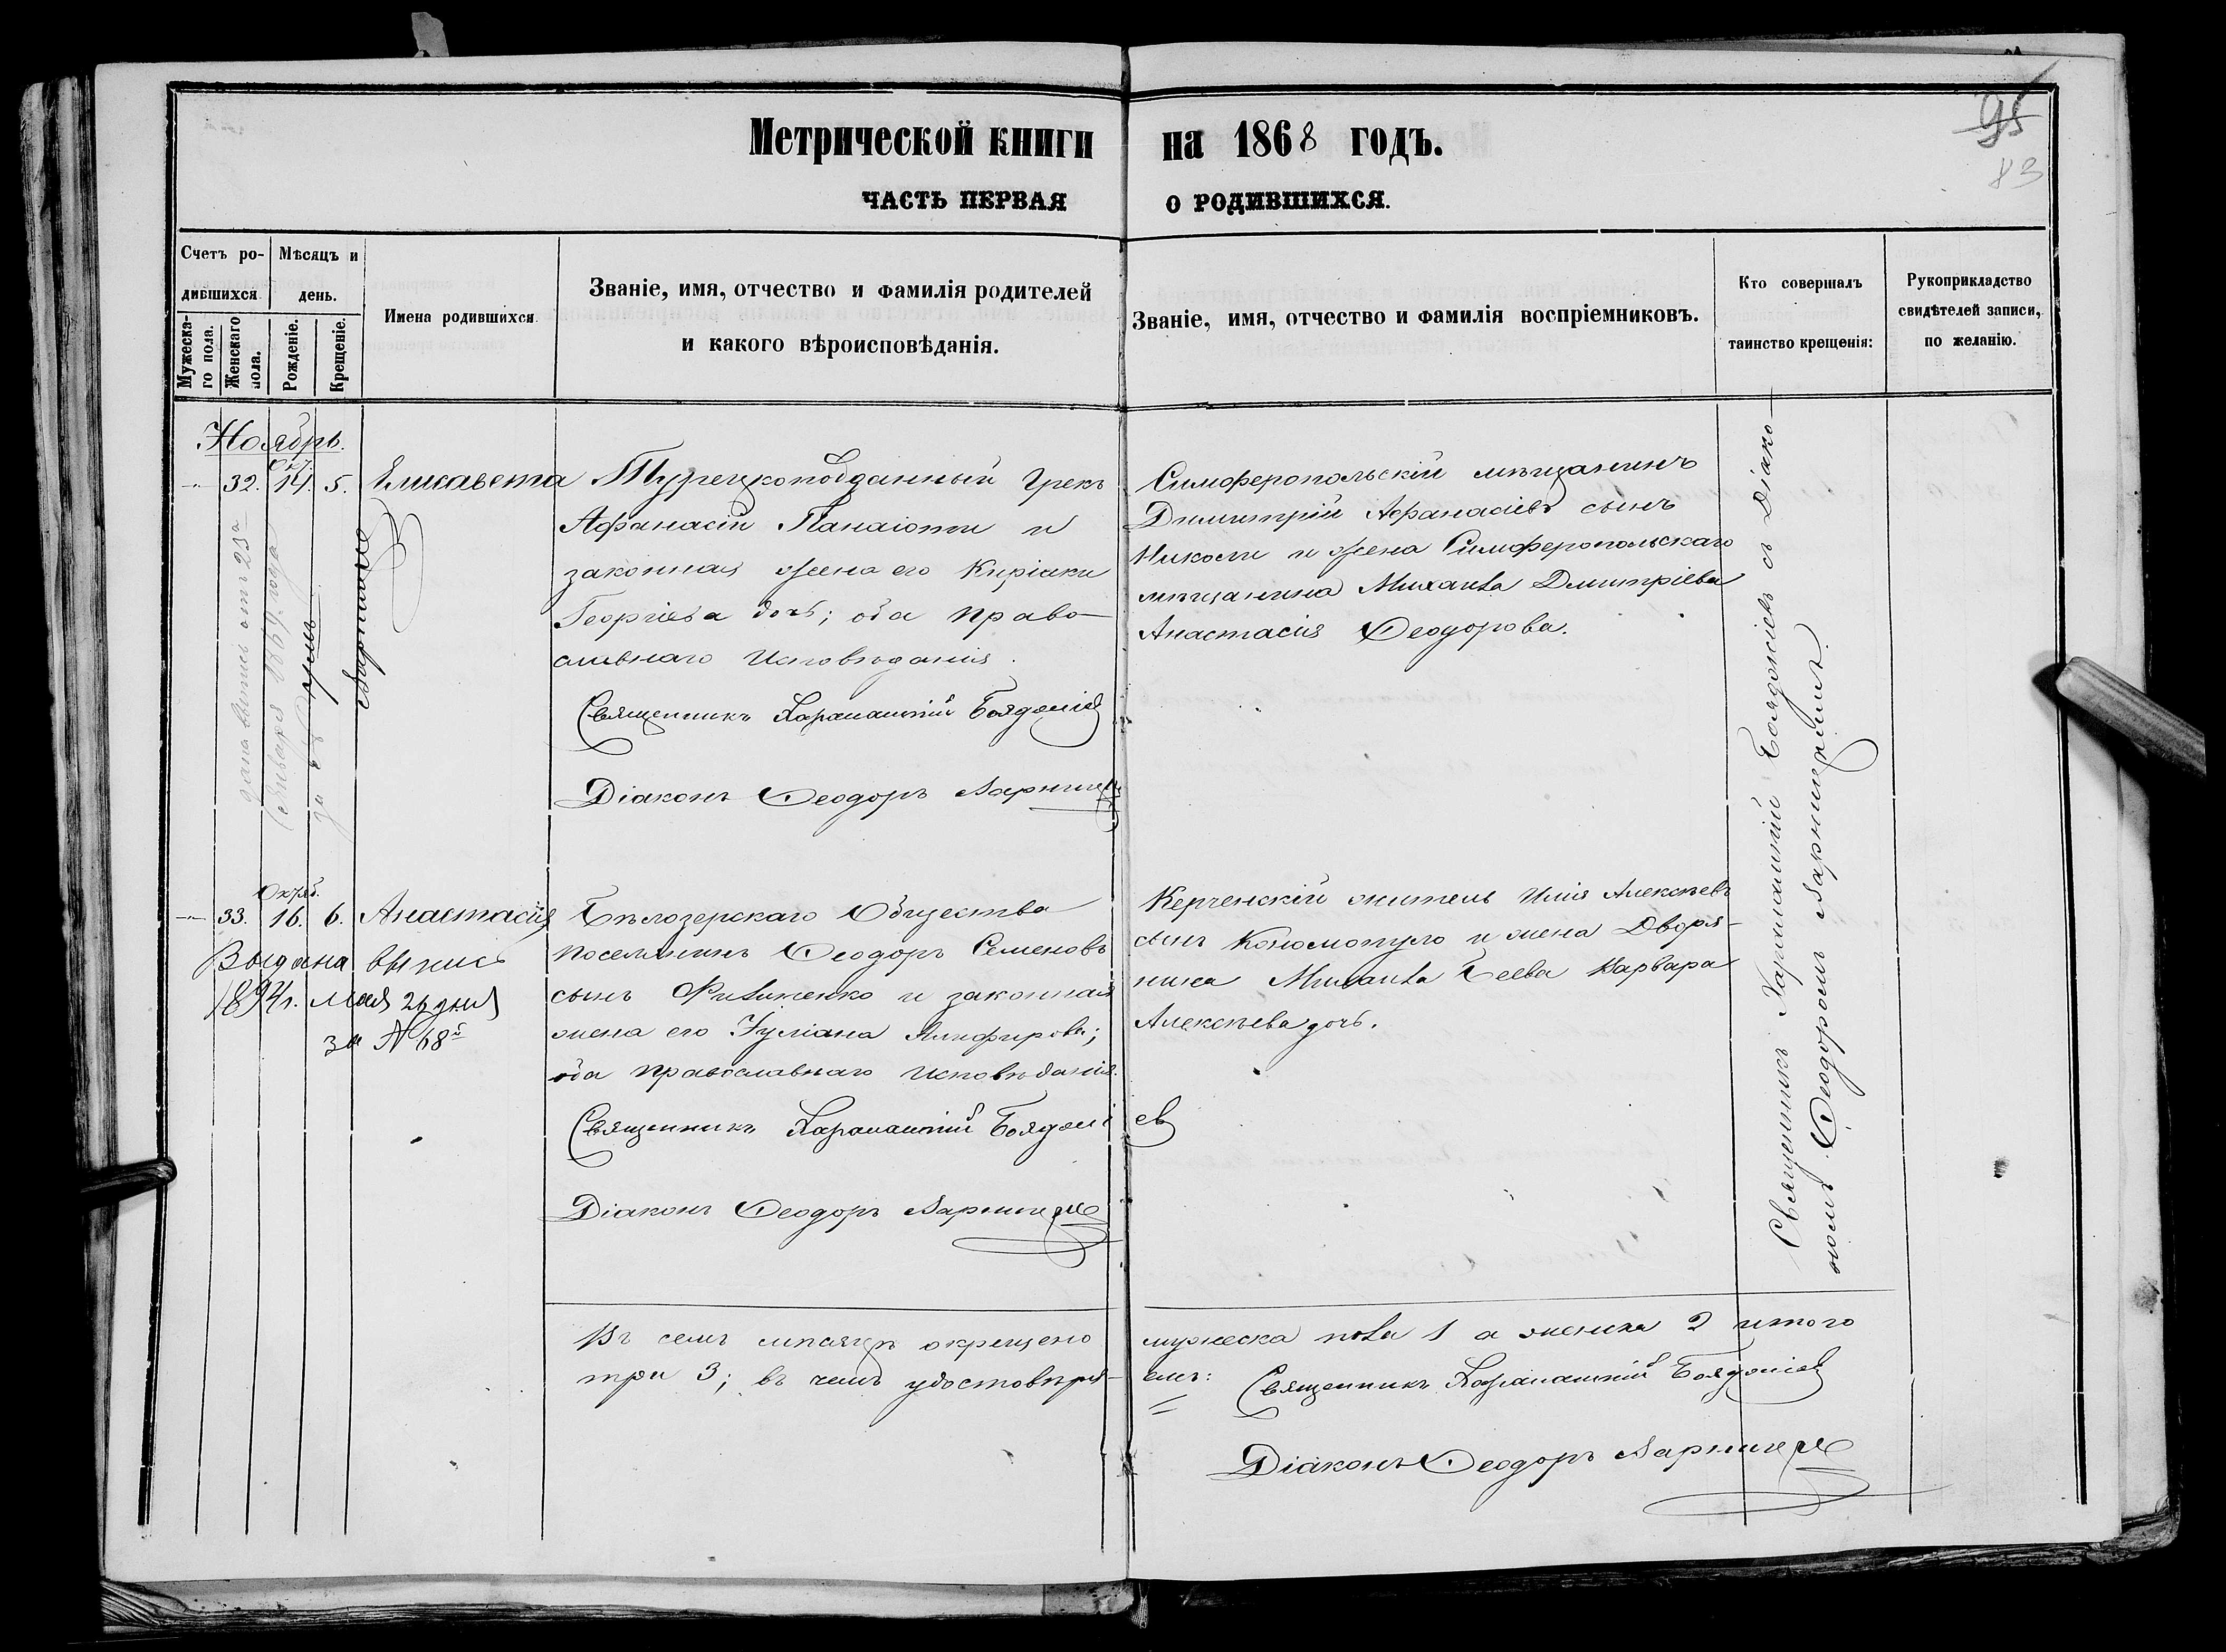 Метрической книги на 1868 годъ.
95
83
ЧАСТЬ ПЕРВАЯ О РОДИВШИХСЯ.
Счетъ ро-
дившихся.
Мужеска-
го пола.
Женскаго
пола.
Мѣсяцъ и
день.
Рожденіе.
Крещеніе.
Имена родившихся.
Званіе, имя, отчество и фамилія родителей
и какого вѣроисповѣданія.
Званіе, имя, отчество и фамилія воспріемниковъ.
Кто совершалъ
таинство крещенія:
Рукоприкладство
свидѣтелей записи,
по желанію.
Ноябрь.
Окт.
32. 14. 5. Елисавета
Турецкоподданный Грекъ
Афанасій Панаіоти и
законная жена его Киріаки
Георгіева дочь; оба право-
славнаго Исповѣданія.
Священникъ Харалампій Бояджіев
Діаконъ Ѳеодоръ
Симферопольскій мѣщанинъ
Димитрій Афанасіевъ сынъ
Николи и жена Симферопольскаго
мѣщанина Михаила Дмитріева
Анастасія Ѳеодорова.
дана выпись отъ 23го
января 1869 года
за №
Октяб.
33. 16. 6. Анастасія
Выдана выпись
1894 г. мая 26 дня
за № 68
Бѣлозерскаго Общества
поселянинъ Ѳеодоръ Семеновъ
сынъ Филипенко и законная
жена его Іуліана
оба православнаго исповѣданія.
Священникъ Харалампій Бояджіев
Діаконъ Ѳеодоръ
Керченскій житель Илія Алексѣевъ
сынъ и жена Дворя-
нина Михаила Варвара
Алексѣева дочь.
Священникъ Харалампій Бояджіевъ съ Діако-
номъ Ѳеодоромъ
Въ семъ мѣсяцѣ окрещено мужеска пола 1 а женска 2 итого
три 3; въ чемъ удостовѣря- емъ:
Священникъ Харалампій Бояджіев
Діаконъ Ѳеодоръ